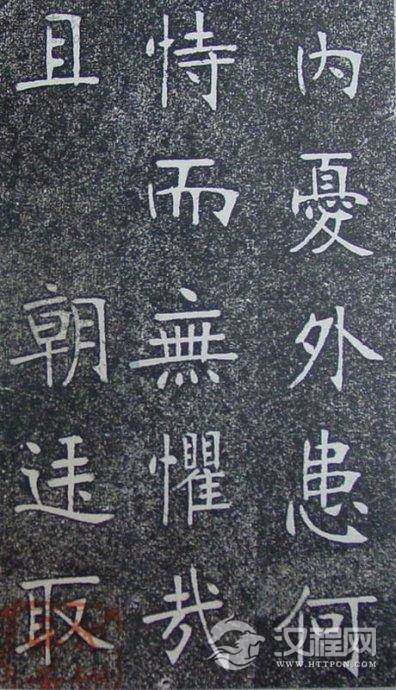 内憂外患何
恃而無懼哉
且 朝廷取
汉程网
WWW.HTTPCN.COM